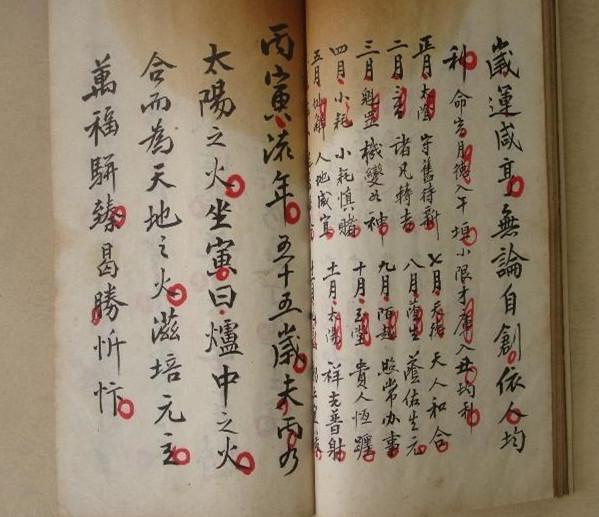 歲運咸亨無論自創依人均
利命宮月德入午垣小限才庫入丑均利
正月太陰守舊待新 七月天德天人和合
二月諸凡轉吉 八月蔭生蔭佑生元
三月魁罡機變如神 九月陌越照常办事
四月小耗小耗慎賭 十月玉堂貴人恒躔
五月人地咸宜 十一月太陽祥光普射
丙寅流年五十五歲夫丙乃
太陽之火坐寅曰爐中之火
合而為天地之火滋培元主
萬福駢臻曷勝忻忭